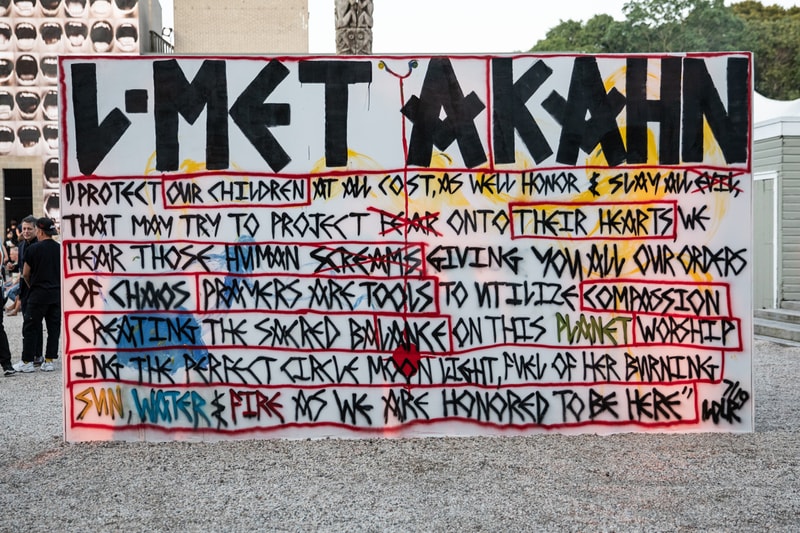 L-MET AKAHN
"PROTECT OUR CHILDREN AT ALL COST, AS WELL HONOR & SLAY ALL EVIL,
THAT MAY TRY TO PROJECT FEAR ONTO THEIR HEARTS WE
HEAR THOSE HUMAN SCREAMS GIVING YOU ALL OUR ORDERS
OF CHAOS PRAYERS ARE TOOLS TO UTILIZE COMPASSION
CREATING THE SACRED BALANCE ON THIS PLANET WORSHIP
ING THE PERFECT CIRCLE MOON LIGHT, FUEL OF HER BURNING
SUN, WATER & FIRE AS WE ARE HONORED TO BE HERE"